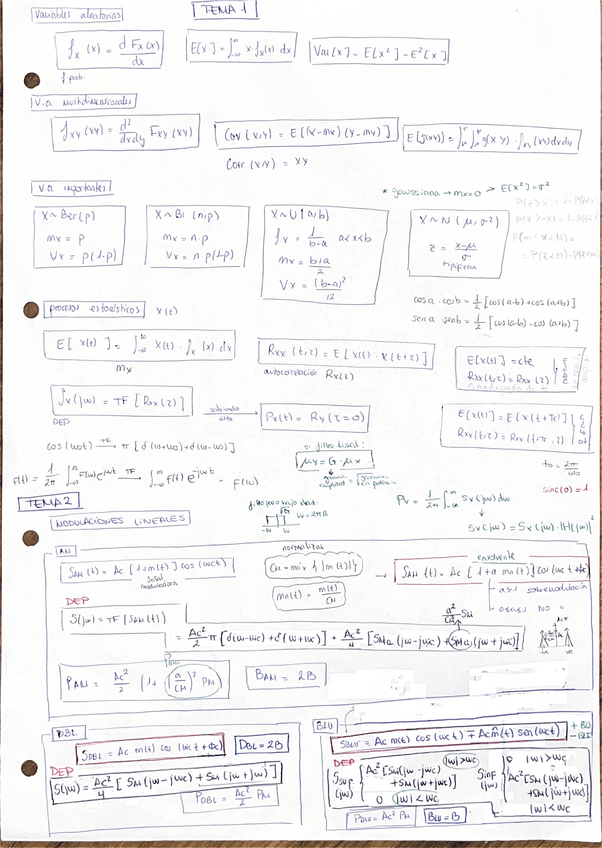 Variables aleatorias
TEMA 1
fx (x) = d Fx(x) / dx
f.prob.
E[x] = ∫-∞^∞ x·fx(x) dx
Var[x] = E[x²] - E²[x]
V.a multidimensionales
fxy (xy) = d² / dxdy Fxy (xy)
Cov (x,y) = E[(x-mx)(y-my)]
E[g(xy)] = ∫∫ g(x y) · fxy (xy) dxdy
Corr (x,y) = xy
V.a importantes
* gaussiana → mx=0 → E[x²]=σ²
X~Ber(p)
mx = p
Vx = p(1-p)
X~Bi (n,p)
mx = n·p
Vx = n·p(1-p)
X~U(a,b)
fx = 1 / b-a a<x<b
mx = b+a / 2
Vx = (b-a)² / 12
X~N (μ, σ²)
z = x-μ / σ
tipificar
cos a · cos b = 1/2 [cos(a-b)+cos(a+b)]
sen a · sen b = 1/2 [cos(a-b)-cos(a+b)]
procesos estocásticos x(t)
E[x(t)] = ∫-∞^∞ x(t)·fx (x) dx
mx
Rxx (t,z) = E[x(t)·x(t+z)]
autocorrelación Rx(z)
E[x(t)] = cte
Rxx(t,z) = Rxx(z)
Sx(jw) = TF [Rxx(z)]
DEP
Px(t) = Rx(z=0)
E[x(t)] = E[x(t+T)]
Rxx(t,z) = Rxx(t+T,z)
cos(wot) TF→ π[δ(w+wo)+δ(w-wo)]
si filtro lineal:
μy = G·μx
to = 2π / wo
f(t) = 1/2π ∫-∞^∞ F(w)e^jwt TF→ ∫-∞^∞ f(t) e^-jwt = F(w)
sinc(0) = 1
TEMA 2
filtro paso bajo ideal:
w=2πB
Pv = 1/2π ∫-∞^∞ Sv(jw) dw
Sy(jw) = Sx(jw)·|H(jw)|²
MODULACIONES LINEALES
AM
SAM(t) = Ac [1+m(t)] cos(wct)
señal moduladora
normalizar
CM = máx{|m(t)|}
mn(t) = m(t) / CM
envolvente
SAM(t) = Ac [1+a mn(t)] cos(wct+φc)
a>1 sobremodulación
0≤a≤1 NO "
DEP
S(jw) = TF [SAM(t)]
= Ac²/2 π [δ(w-wc)+δ(w+wc)] + Ac²/4 [SMa(jw-jwc)+SMa(jw+jwc)]
a²/CM² SM
Pma
PAM = Ac²/2 (1+(a/CM)² PM)
BAM = 2B
DBL
SDBL = Ac m(t) cos(wct+φc)
DBL = 2B
DEP
S(jw) = Ac²/4 [SM(jw-jwc)+SM(jw+jwc)]
PDBL = Ac²/2 PM
BLU
SBLU = Ac m(t) cos(wct) ∓ Ac m̂(t) sen(wct)
+ BLS
- BLI
DEP
Ssup (jw) { Ac² [SM(jw-jwc) +SM(jw+jwc)] |w|>wc
0 |w|<wc
Sinf (jw) { 0 |w|>wc
Ac² [SM(jw-jwc) +SM(jw+jwc)]
|w|<wc
PBLU = Ac² PM
BBLU = B